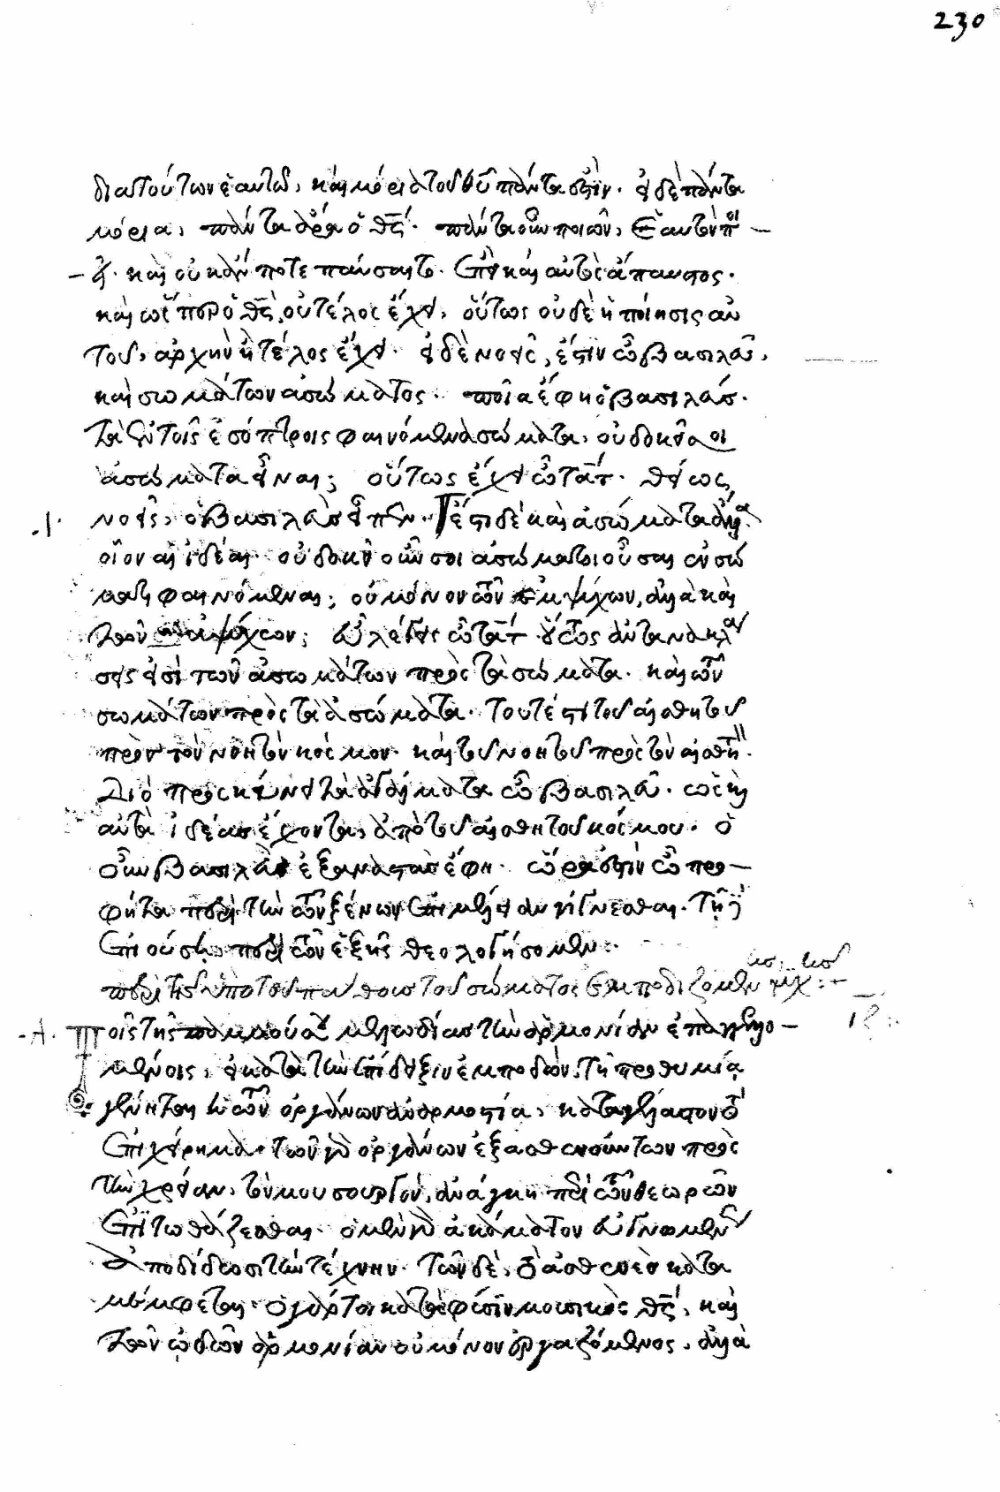 230
διὰ τούτων ἑαυτῷ, καὶ μόρια τοῦ θεοῦ πάντα ἐστίν. εἰ δὲ πάντα
μόρια, πάντα ἄρα ὁ θεός. πάντα οὖν ποιῶν, ἑαυτὸν ποι-
εῖ. καὶ οὐκ ἄν ποτε παύσαιτο. ἐπεὶ καὶ αὐτὸς ἄπαυστος.
καὶ ὥσπερ ὁ θεὸς οὐ τέλος ἔχει, οὕτως οὐδὲ ἡ ποίησις αὐ
τοῦ, ἀρχὴν ἢ τέλος ἔχει. εἰ δὲ νοεῖς, ἔστιν ὦ βασιλεῦ,
καὶ σωμάτων ἀσώματος. ποῖα ἔφη ὁ βασιλεύς.
τὰ ἐν τοῖς ἐσόπτροις φαινόμενα σώματα, οὐ δοκεῖ σοι
ἀσώματα εἶναι; οὕτως ἔχει ὦ τάτ. θείως
νοεῖς, ὁ βασιλεὺς εἶπεν. ἔστι δὲ καὶ ἀσώματα ἄλλα.
οἷον αἱ ἰδέαι. οὐ δοκεῖ οὖν σοι ἀσώματοι οὖσαι ἐν σώ
μασι φαινόμεναι; οὐ μόνον τῶν ἐμψύχων, ἀλλὰ καὶ
τῶν ἀψύχων; εὖ λέγεις ὦ τάτ. οὕτως ἀντανακλά
σεις εἰσὶ τῶν ἀσωμάτων πρὸς τὰ σώματα. καὶ τῶν
σωμάτων πρὸς τὰ ἀσώματα. τουτέστι τοῦ αἰσθητοῦ
πρὸς τὸν νοητὸν κόσμον. καὶ τοῦ νοητοῦ πρὸς τὸν αἰσθητόν.
Διὸ προσκύνει τὰ ἀγάλματα ὦ βασιλεῦ. ὡς καὶ
αὐτὰ ἰδέας ἔχοντα, ἀπὸ τοῦ αἰσθητοῦ κόσμου. ὁ
οὖν βασιλεὺς ἐξαναστὰς ἔφη. ὥρα ἐστὶν ὦ προ-
φῆτα περὶ τὴν τῶν ξένων ἐπιμέλειαν γίνεσθαι. τῇ δὲ
ἐπιούσῃ, περὶ τῶν ἑξῆς θεολογήσομεν:
περὶ τῆς ὑπὸ τοῦ πάθους τοῦ σώματος ἐμποδιζομένης ψυχῆς:
Τοῖς τῆς παμμούσου μελῳδίας τὴν ἁρμονίαν ἐπαγγελλο-
μένοις, εἰ κατὰ τὴν ἐπίδειξιν ἐμποδὼν τῇ προθυμίᾳ
γένηται ἡ τῶν ὀργάνων ἀναρμοστία, καταγέλαστον τὸ
ἐπιχείρημα. τῶν γὰρ ὀργάνων ἐξασθενούντων πρὸς
τὴν χρείαν, τὸν μουσουργὸν, ἀνάγκη παρὰ τῶν θεωρῶν
ἐπιτωθάζεσθαι. ὁ μὲν γὰρ ἀκάματον εὐγνωμόνως
ἀποδίδωσι τὴν τέχνην. τῶν δὲ, τὸ ἀσθενὲς κατα
μέμφεται. ὁ γάρ τοι κατὰ φύσιν μουσικὸς θεὸς, καὶ
τῶν ᾠδῶν ἁρμονίαν οὐ μόνον ἐργαζόμενος, ἀλλὰ